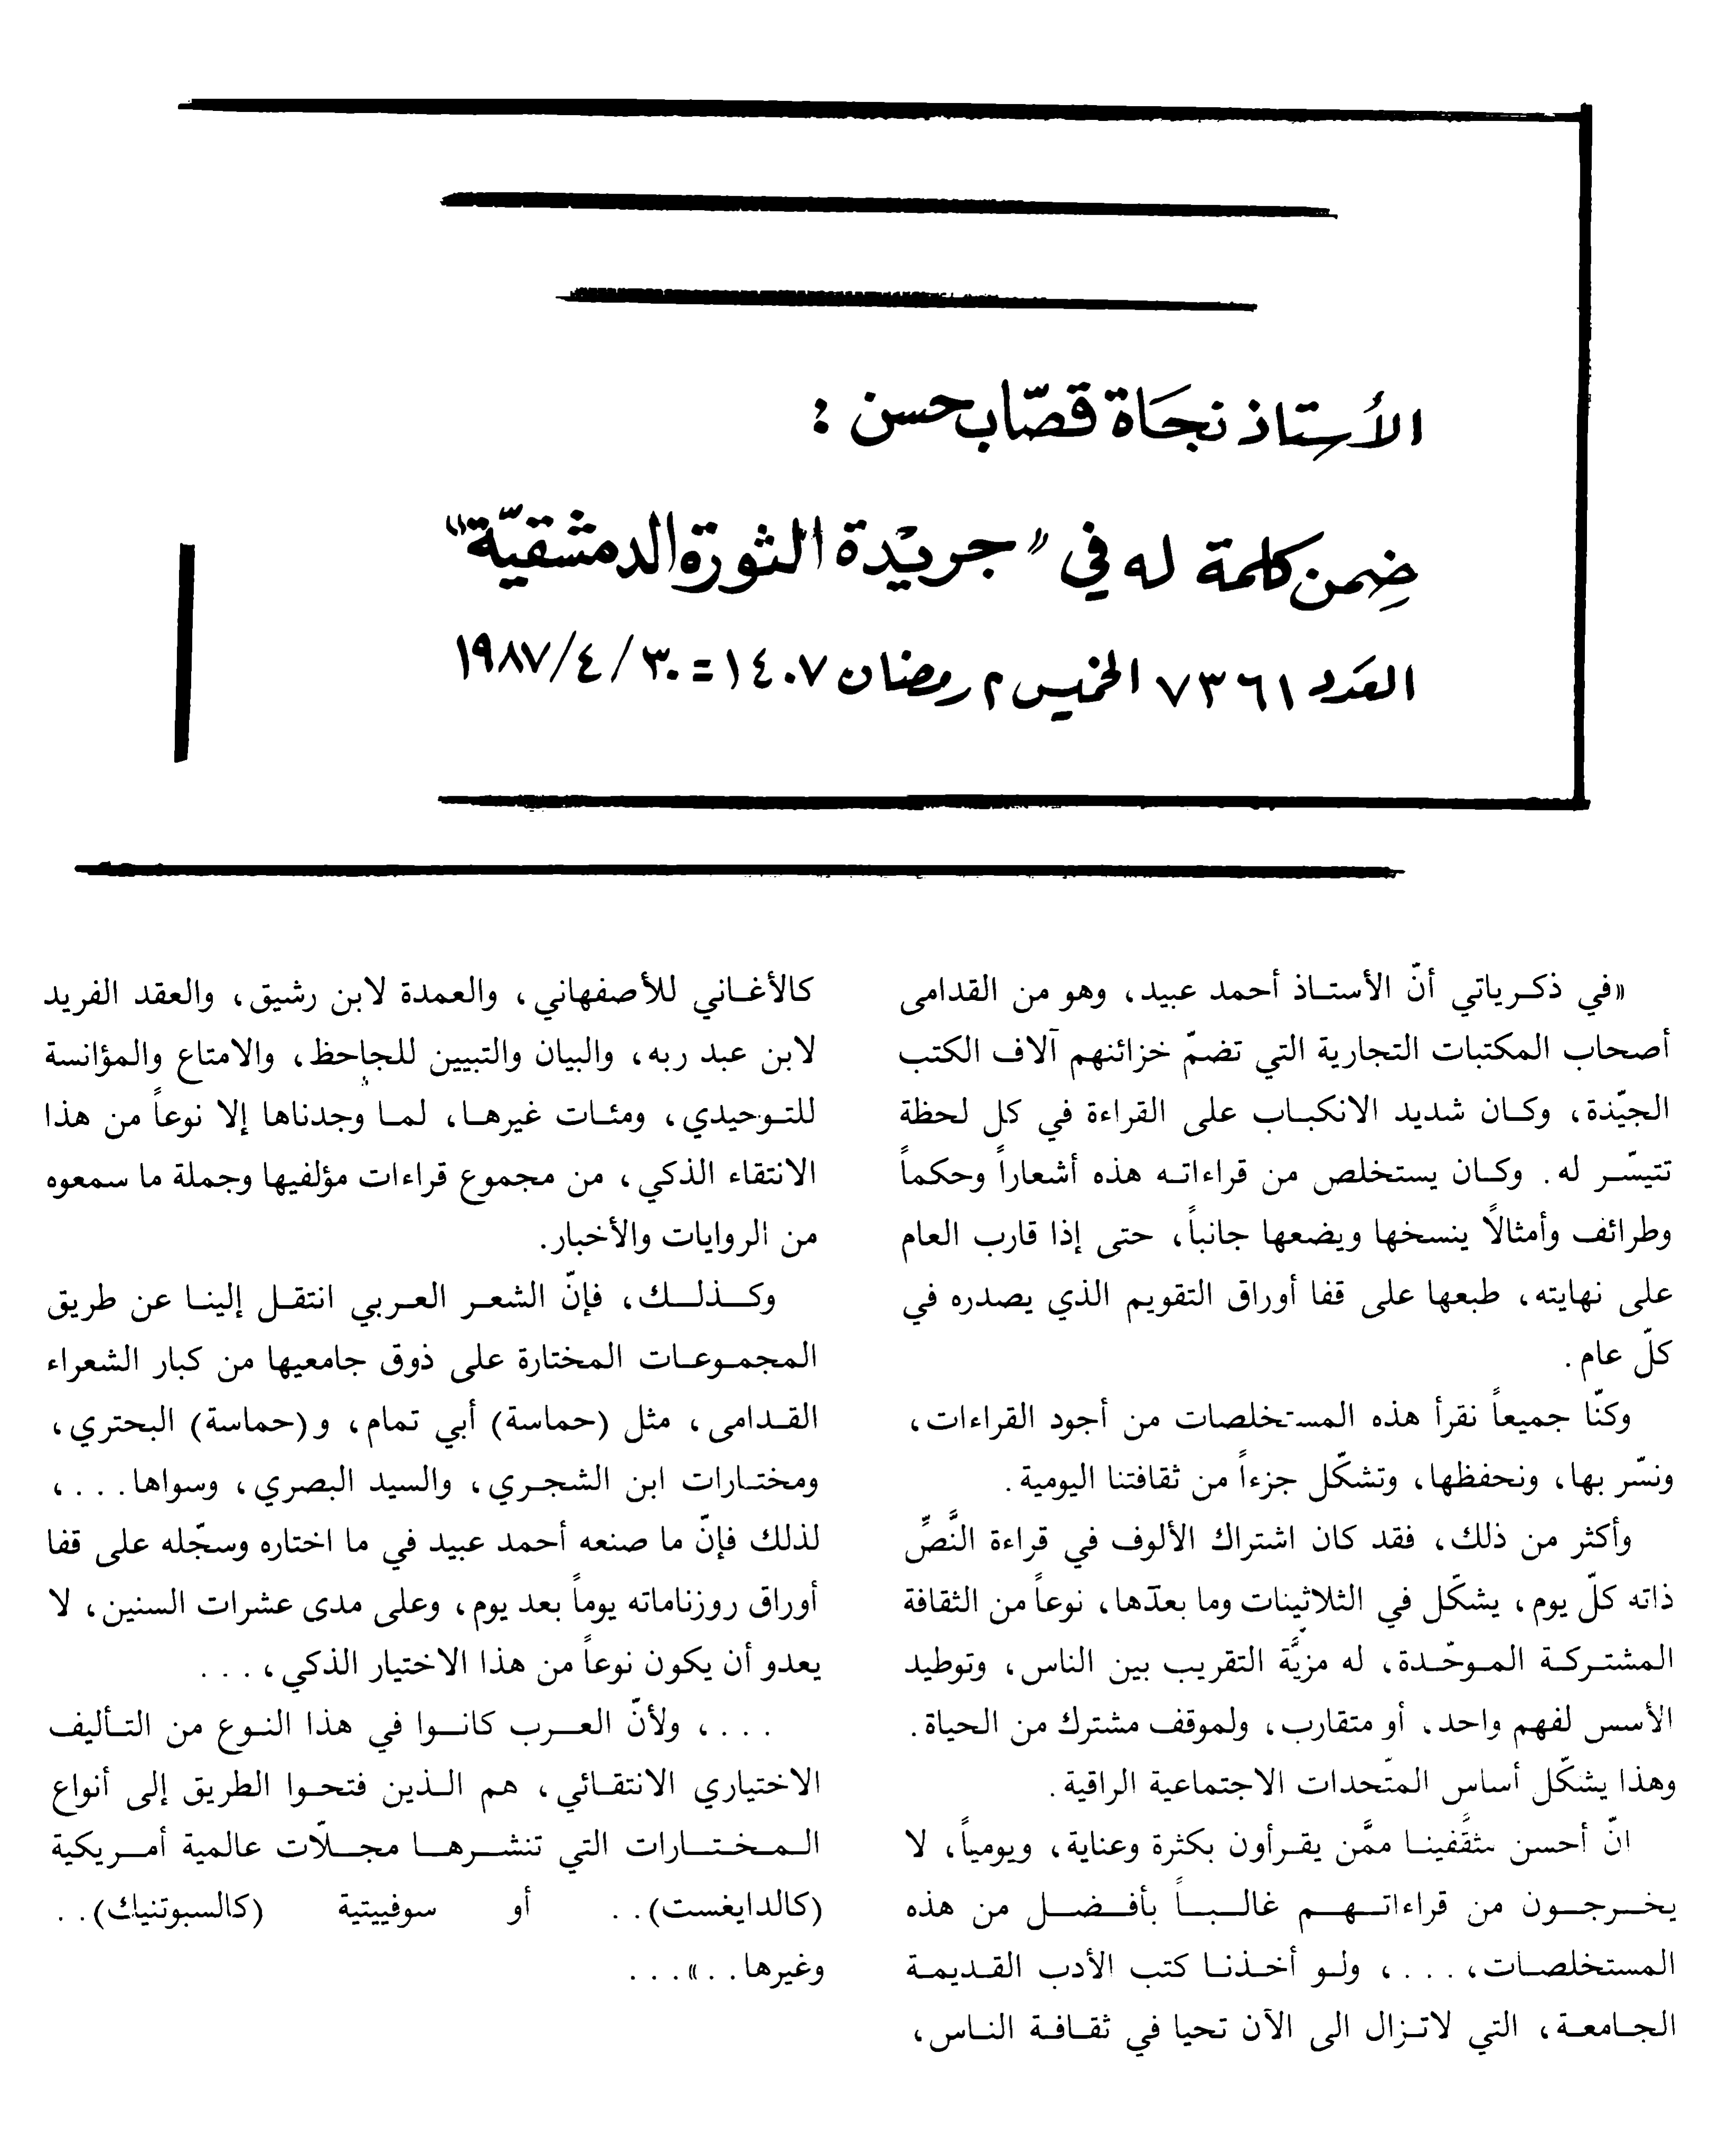 الأستاذ نجاة قصّاب حسن :
ضمن كلمة له في "جريدة الثورة الدمشقيّة"
العدد ٧٣٦١ الخميس ٢ رمضان ١٤٠٧ = ٣٠ /٤ /١٩٨٧
«في ذكرياتي أنّ الأستاذ أحمد عبيد، وهو من القدامى
أصحاب المكتبات التجارية التي تضمّ خزائنهم آلاف الكتب
الجيّدة، وكان شديد الانكباب على القراءة في كل لحظة
تتيسّر له. وكان يستخلص من قراءاته هذه أشعاراً وحكماً
وطرائف وأمثالًا ينسخها ويضعها جانباً، حتى إذا قارب العام
على نهايته، طبعها على قفا أوراق التقويم الذي يصدره في
كلّ عام.
وكنّا جميعاً نقرأ هذه المستخلصات من أجود القراءات،
ونسّر بها، ونحفظها، وتشكّل جزءاً من ثقافتنا اليومية.
وأكثر من ذلك، فقد كان اشتراك الألوف في قراءة النَّصِّ
ذاته كلّ يوم، يشكّل في الثلاثينات وما بعدها، نوعاً من الثقافة
المشتركة الموحّدة، له مزيَّة التقريب بين الناس، وتوطيد
الأسس لفهم واحد، أو متقارب، ولموقف مشترك من الحياة.
وهذا يشكّل أساس المتّحدات الاجتماعية الراقية.
انّ أحسن مثقَّفينا ممَّن يقرأون بكثرة وعناية، ويومياً، لا
يخرجون من قراءاتهم غالباً بأفضل من هذه
المستخلصات، . . .، ولو أخذنا كتب الأدب القديمة
الجامعة، التي لاتزال الى الآن تحيا في ثقافة الناس،
كالأغاني للأصفهاني، والعمدة لابن رشيق، والعقد الفريد
لابن عبد ربه، والبيان والتبيين للجاحظ، والامتاع والمؤانسة
للتوحيدي، ومئات غيرها، لما وجدناها إلا نوعاً من هذا
الانتقاء الذكي، من مجموع قراءات مؤلفيها وجملة ما سمعوه
من الروايات والأخبار.
وكذلك، فإنّ الشعر العربي انتقل إلينا عن طريق
المجموعات المختارة على ذوق جامعيها من كبار الشعراء
القدامى، مثل (حماسة) أبي تمام، و(حماسة) البحتري،
ومختارات ابن الشجري، والسيد البصري، وسواها. . .،
لذلك فإنّ ما صنعه أحمد عبيد في ما اختاره وسجّله على قفا
أوراق روزناماته يوماً بعد يوم، وعلى مدى عشرات السنين، لا
يعدو أن يكون نوعاً من هذا الاختيار الذكي، . . .
. . .، ولأنّ العرب كانوا في هذا النوع من التأليف
الاختياري الانتقائي، هم الذين فتحوا الطريق إلى أنواع
المختارات التي تنشرها مجلّات عالمية أمريكية
(كالدايغست). . أو سوفييتية (كالسبوتنيك). .
وغيرها. .». . .